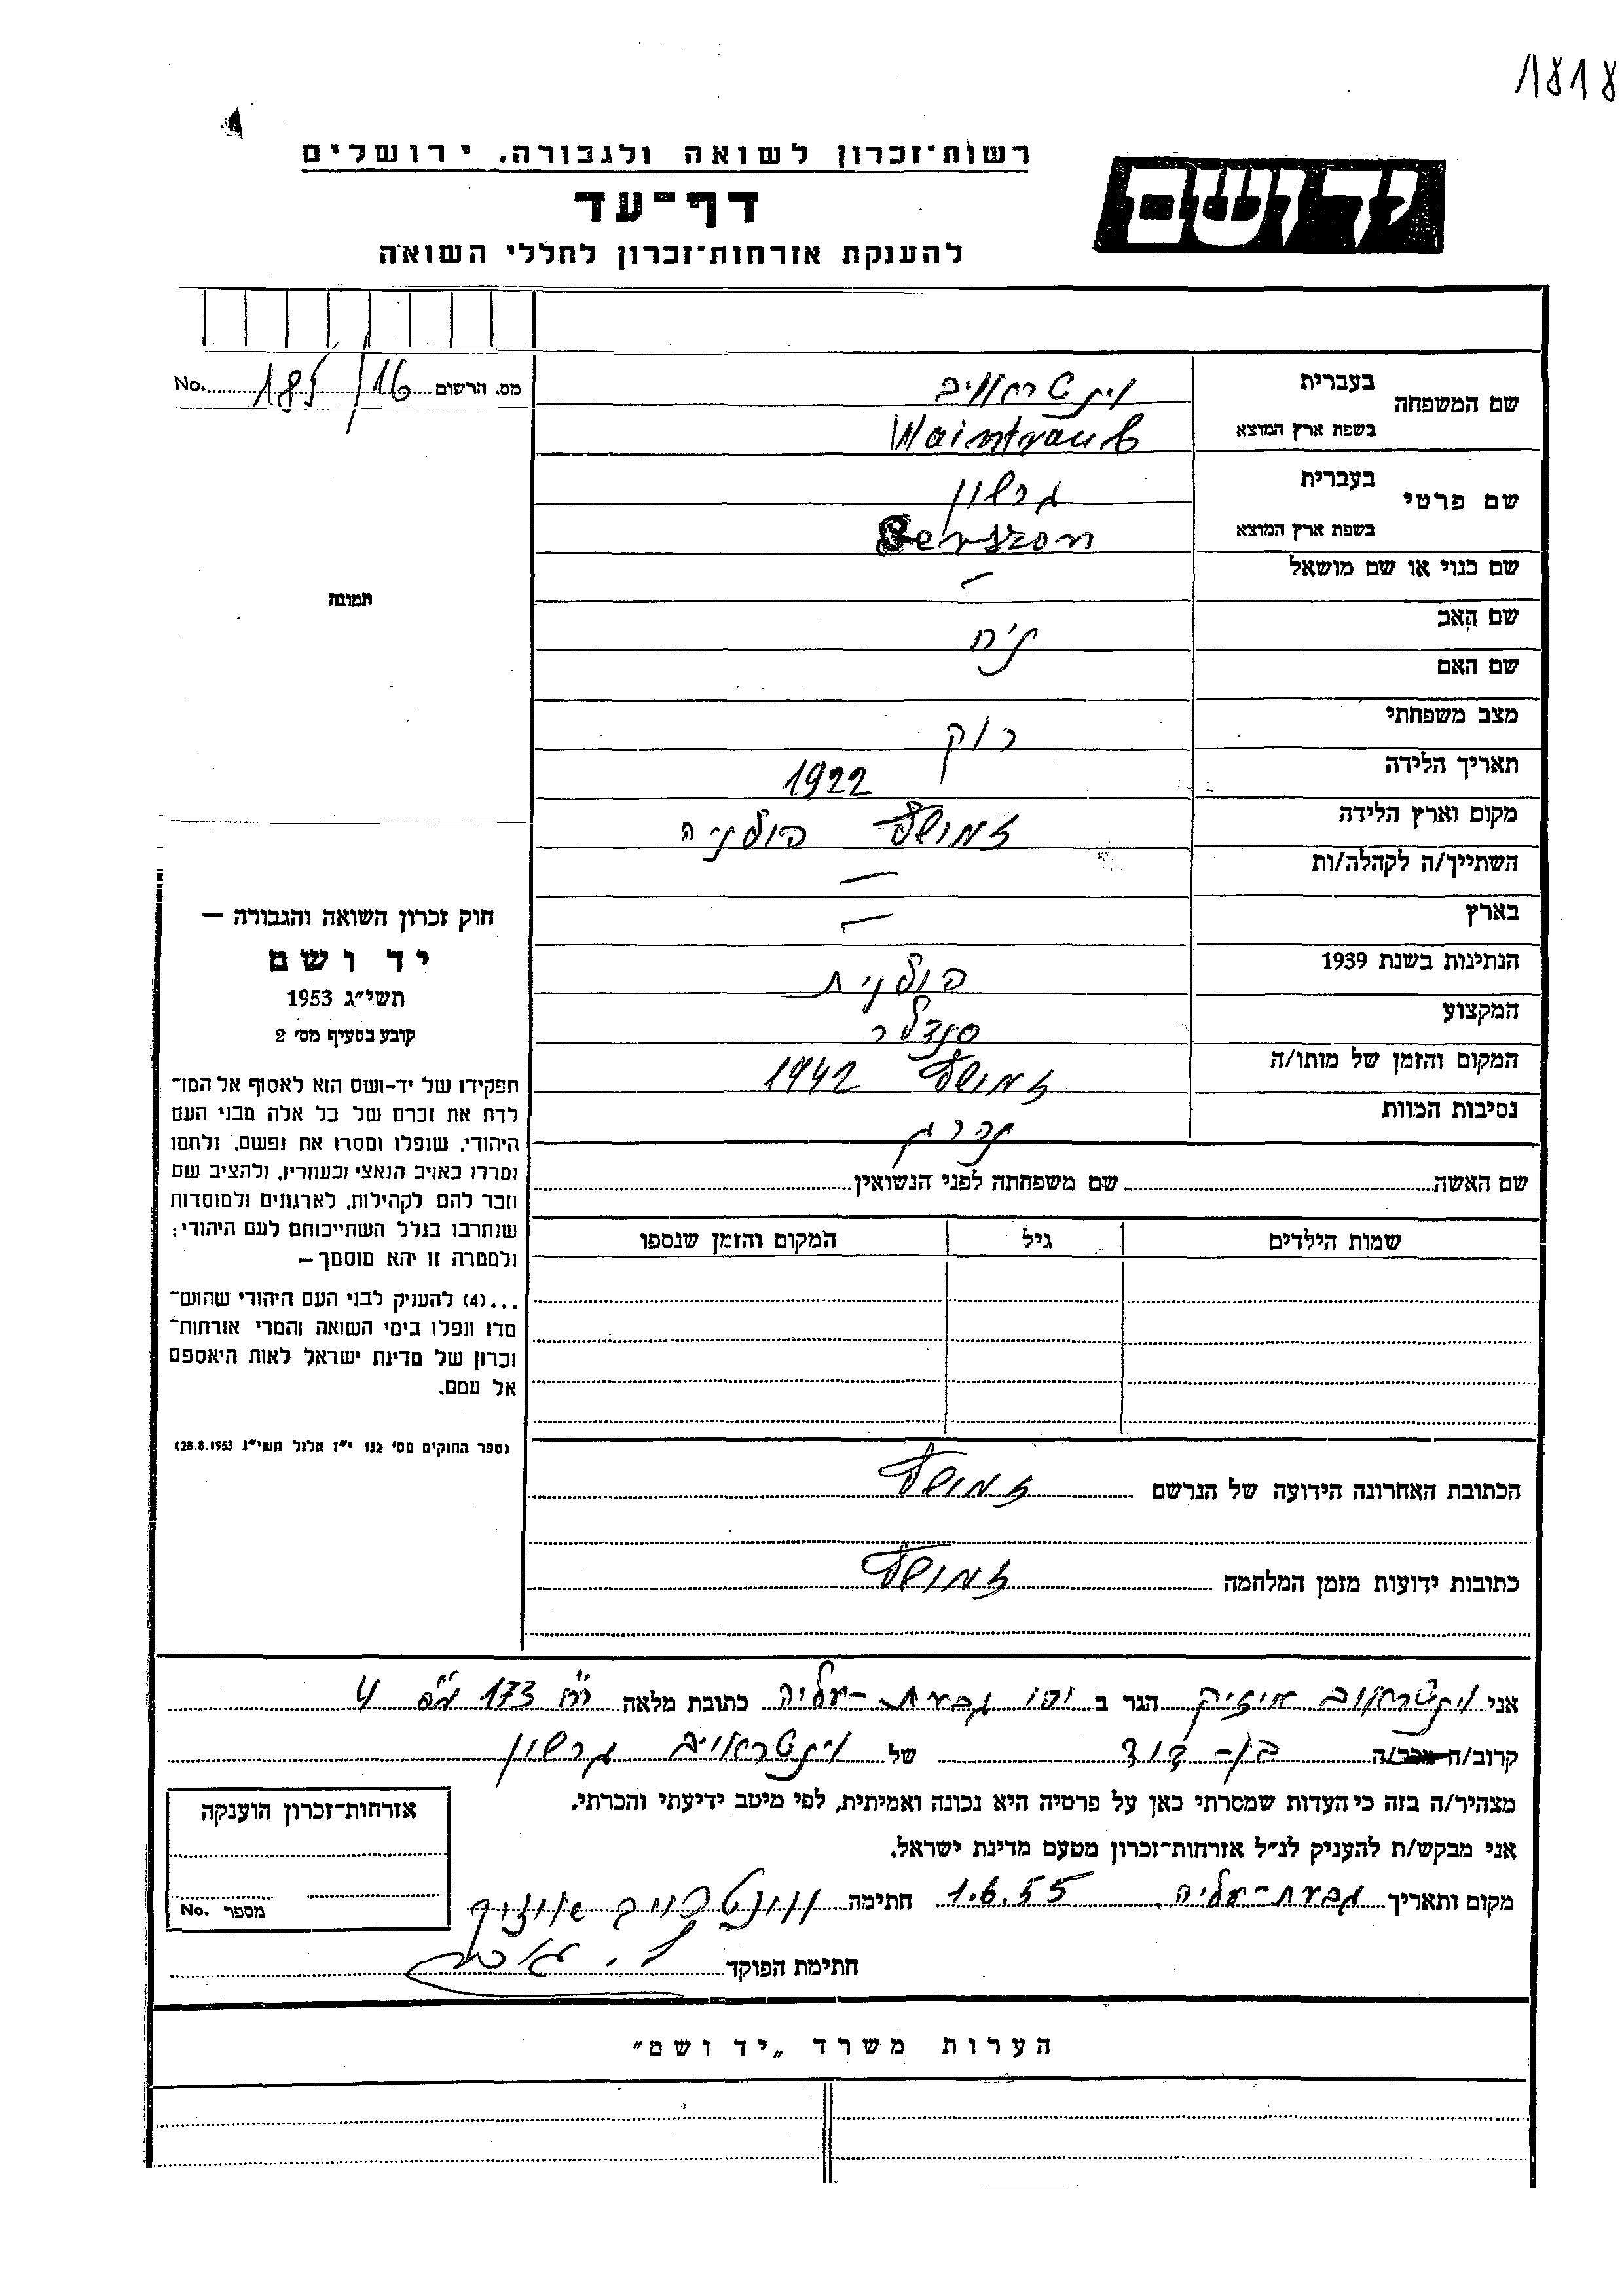 1818
רשות־זכרון לשואה ולגבורה, ירושלים
יד ושם
דף־עד
להענקת אזרחות־זכרון לחללי השואה
מס. הרשום 16/185 No.
שם המשפחה בעברית וינטראויב
בשפת ארץ המוצא Waintraub
שם פרטי בעברית גרשון
בשפת ארץ המוצא Gerszon
שם כנוי או שם מושאל —
תמונה
שם האב נ׳ח
שם האם
מצב משפחתי רוק
תאריך הלידה 1922
מקום וארץ הלידה זמושץ פולניה
השתייך/ה לקהלה/ות —
בארץ —
הנתינות בשנת 1939 פולנית
המקצוע סנדלר
המקום והזמן של מותו/ה זמושץ 1942
נסיבות המוות נהרג
שם האשה שם משפחתה לפני הנשואין
שמות הילדים גיל המקום והזמן שנספו
הכתובת האחרונה הידועה של הנרשם זמושץ
כתובות ידועות מזמן המלחמה זמושץ
חוק זכרון השואה והגבורה —
יד ושם
תשי״ג 1953
קובע בסעיף מס׳ 2
תפקידו של יד-ושם הוא לאסוף אל המו־
לדת את זכרם של כל אלה מבני העם
היהודי, שנפלו ומסרו את נפשם, נלחמו
ומרדו באויב הנאצי ובעוזריו, ולהציב שם
וזכר להם לקהילות, לארגונים ולמוסדות
שנחרבו בגלל השתייכותם לעם היהודי;
ולמטרה זו יהא מוסמך —
...(4) להעניק לבני העם היהודי שהוש־
מדו ונפלו בימי השואה והמרי אזרחות־
זכרון של מדינת ישראל לאות היאספם
אל עמם.
(ספר החוקים מס׳ 132 י״ז אלול תשי״ג 28.8.1953)
אני וינטראויב איזיק הגר ב יפו גבעת-עליה כתובת מלאה רח׳ 173 מס׳ 4
קרוב/ה מכר/ה בן-דוד של וינטראויב גרשון
מצהיר/ה בזה כי העדות שמסרתי כאן על פרטיה היא נכונה ואמיתית, לפי מיטב ידיעתי והכרתי.
אני מבקש/ת להעניק לנ״ל אזרחות־זכרון מטעם מדינת ישראל.
מקום ותאריך גבעת-עליה. 1.6.55 חתימה
חתימת הפוקד
אזרחות־זכרון הוענקה
מספר No.
הערות משרד „יד ושם״